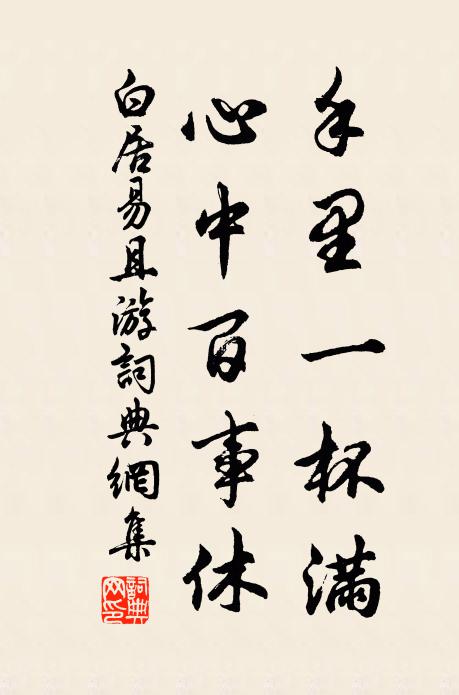 手里一杯滿
心中百事休
白居易且游詞典網集
詞典網印